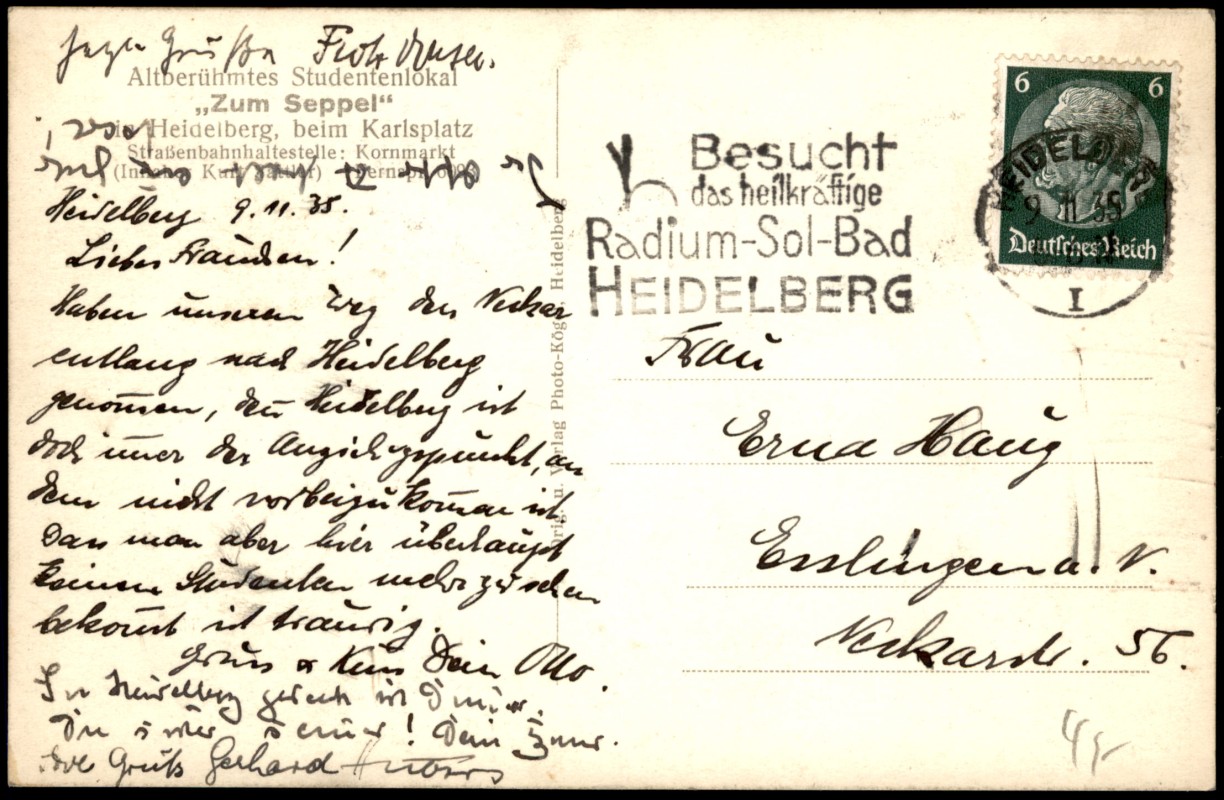 Grüße
Altberühmtes Studentenlokal
„Zum Seppel“
in Heidelberg, beim Karlsplatz
Straßenbahnhaltestelle: Kornmarkt
(Inhaber Kurt
Heidelberg 9.11.35.
Liebes Frauchen!
Haben unseren Weg den Neckar
entlang nach Heidelberg
genommen, den Heidelberg ist
doch immer der Anziehgspunkt, an
dem nicht vorbeizukommen ist.
Dass man aber hier überhaupt
keinen Studenten mehr zu sehen
bekommt ist traurig.
Gruss & Kuss Dein Otto.
In Heidelberg
Dein
Gruß Gerhard
Orig. u. Verlag Photo-Kög, Heidelberg
Besucht
das heilkräftige
Radium-Sol-Bad
HEIDELBERG
6 6
HEIDELBERG
9 11 35
Deutsches Reich
I
Frau
Erna Haug
Esslingen a. N.
Neckarstr. 56.